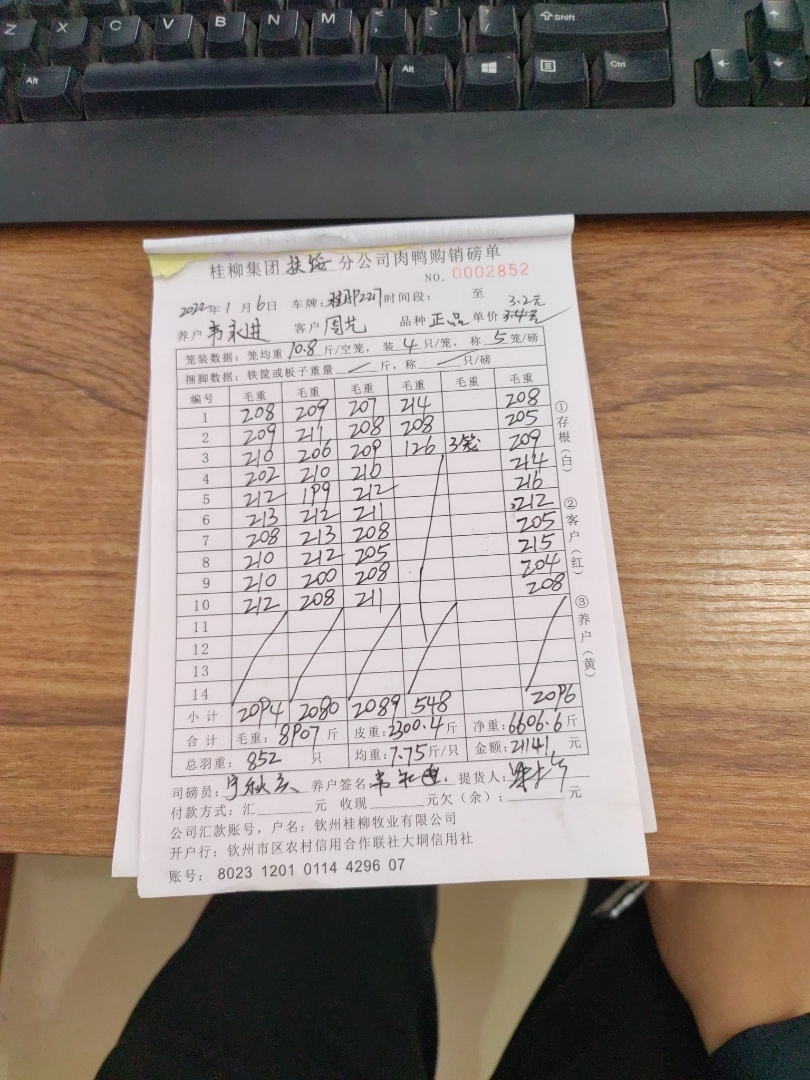 Z X C V B N M < > ? Shift
Alt Alt Ctrl
桂柳集团扶绥分公司肉鸭购销磅单
NO. 0002852
2022年1月6日 车牌: 时间段: 至 3.2元
养户 韦永进 客户 周艺 品种 正品 单价 3.4元
笼装数据: 笼均重 10.8 斤/空笼, 装 4 只/笼, 称 5 笼/磅
捆脚数据: 铁筐或板子重量 斤, 称 只/磅
编号 毛重 毛重 毛重 毛重 毛重 毛重
1 208 209 207 214 208
2 209 211 208 208 205
3 210 206 209 126 3笼 209
4 202 210 210 214
5 212 199 212 216
6 213 212 211 212
7 208 213 208 205
8 210 212 205 215
9 210 200 208 204
10 212 208 211 208
11
12
13
14
小计 2094 2080 2089 548 2096
合计 毛重: 8907 斤 皮重: 2300.4 斤 净重: 6606.6 斤
总羽重: 852 只 均重: 7.75 斤/只 金额: 21141 元
司磅员: 养户签名: 提货人:
付款方式: 汇 元 收现 元欠(余): 元
公司汇款账号, 户名: 钦州桂柳牧业有限公司
开户行: 钦州市区农村信用合作联社大垌信用社
账号: 8023 1201 0114 4296 07
①存根(白)
②客户(红)
③养户(黄)